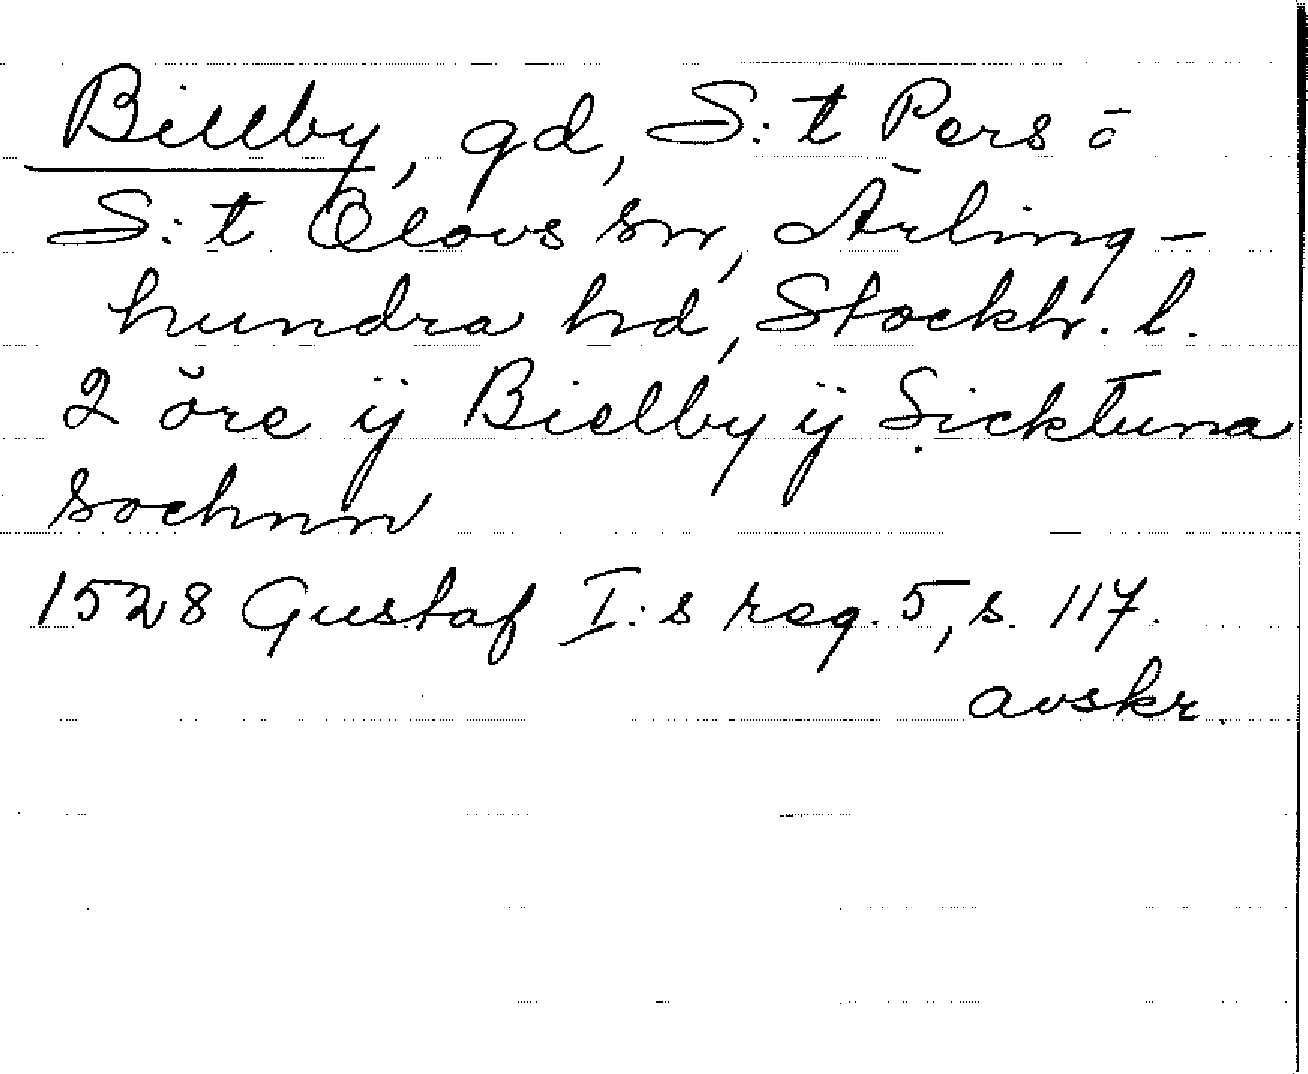 Billby, gd, S:t Pers o
S:t Olovs sn, Ärling-
hundra hd, Stockh. l.
2 öre ij Bielby ij Sicktuna
sochnn
1528 Gustaf I:s reg. 5, s. 117.
avskr.